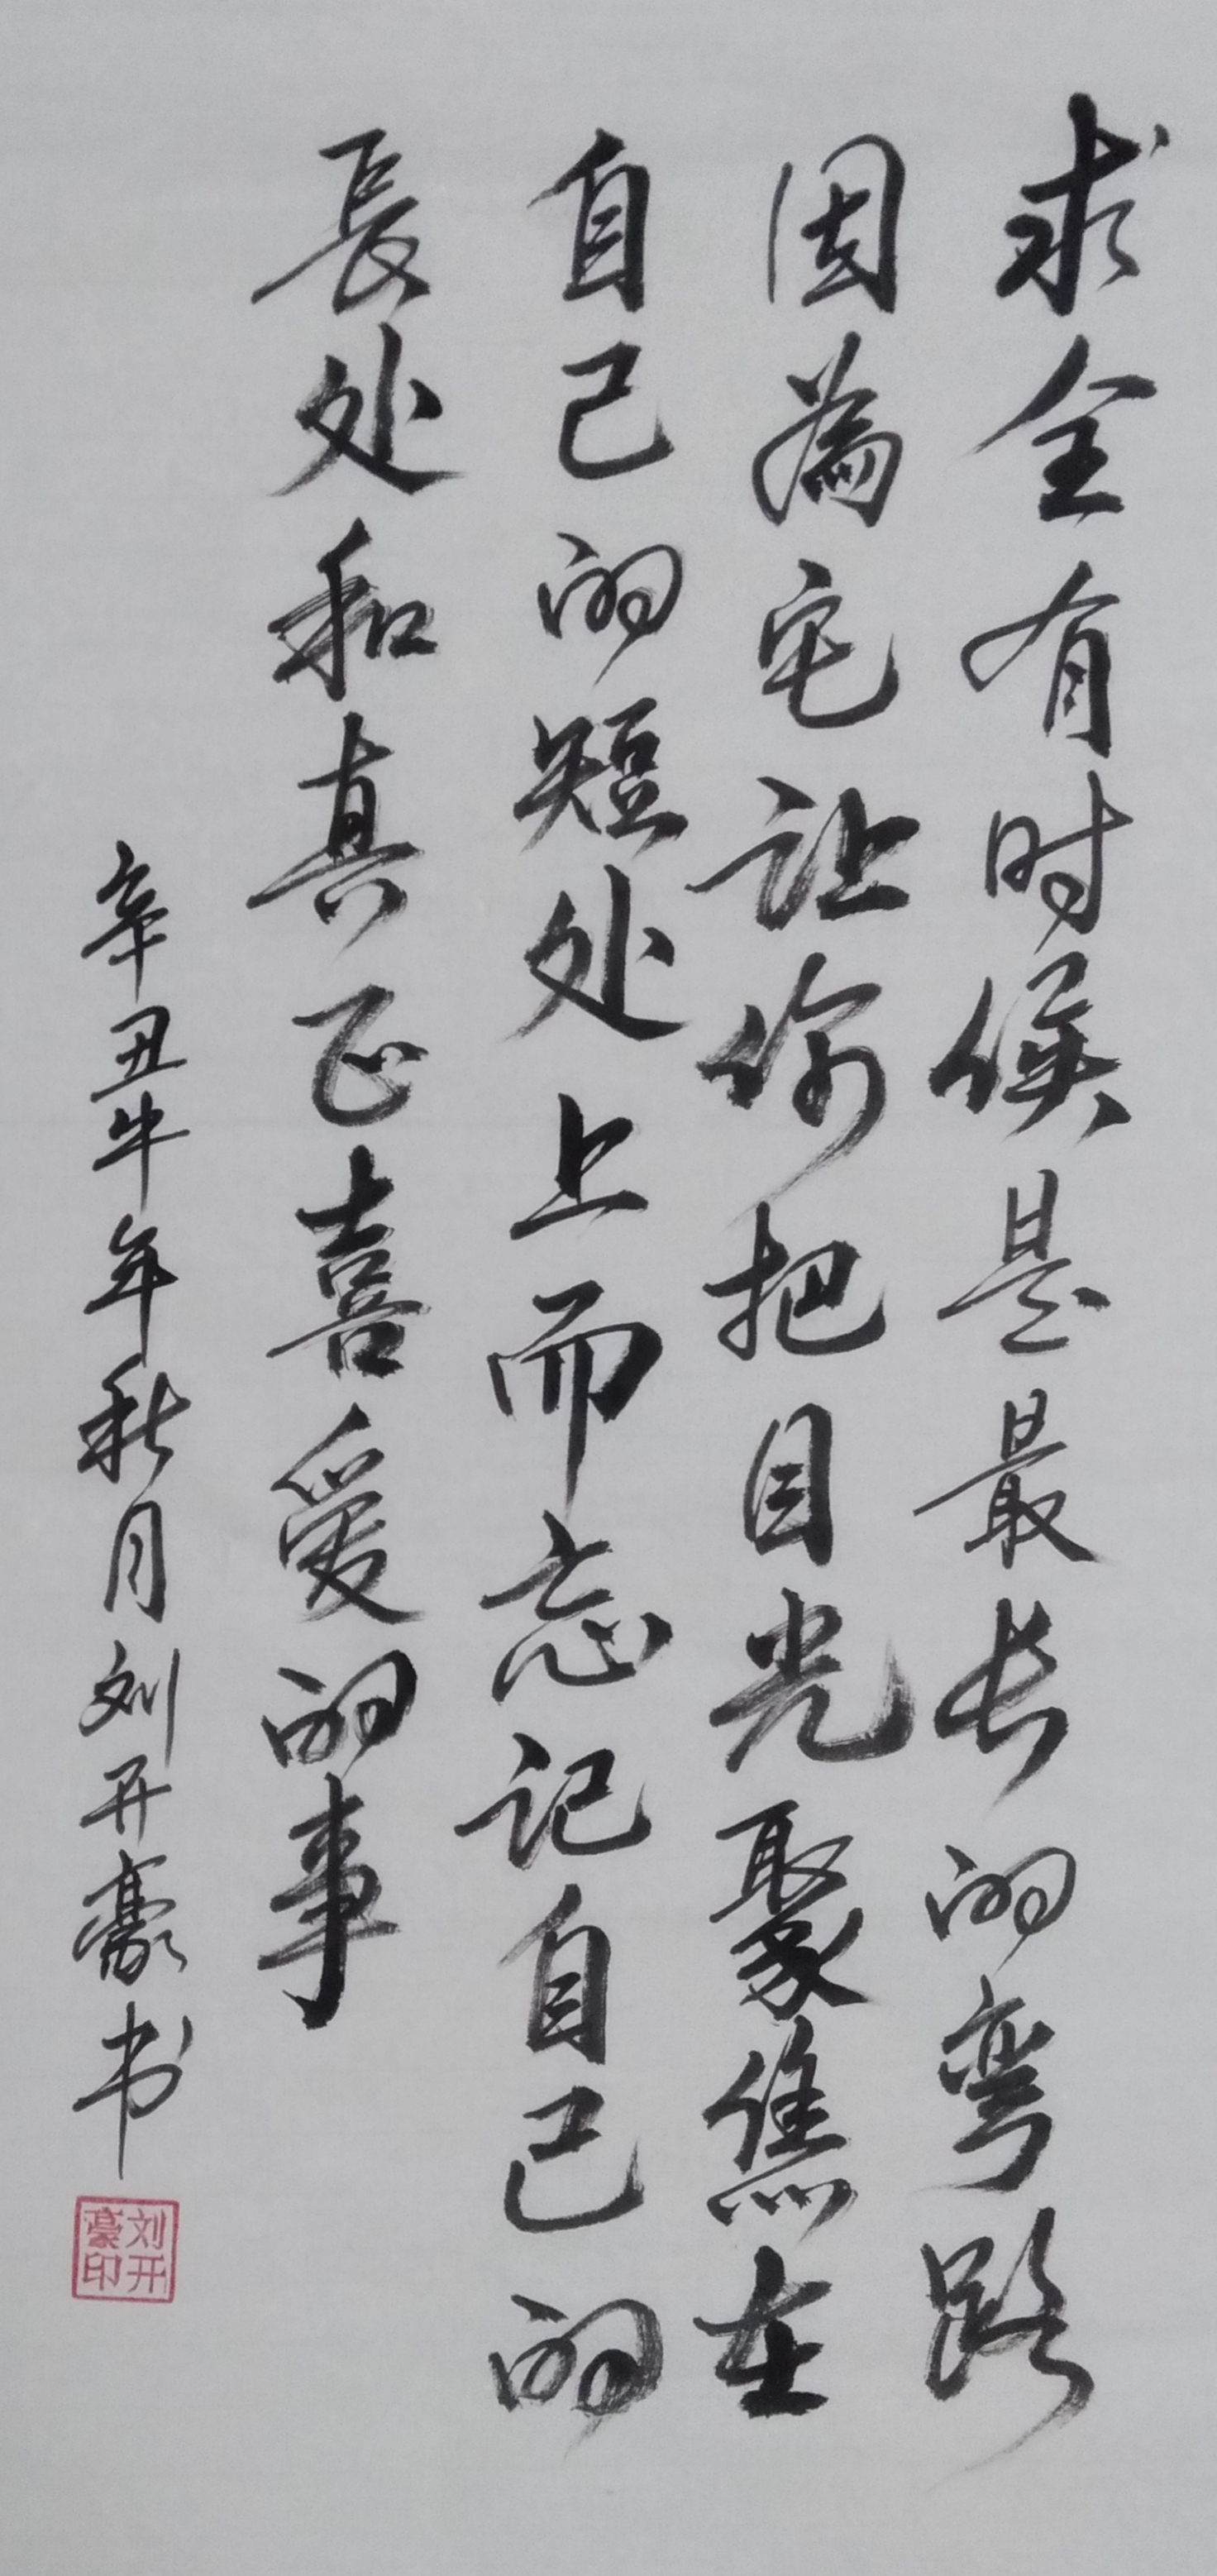 求全有时候是最长的弯路
因為它让你把目光聚焦在
自己的短处上而忘记自己的
長处和真正喜爱的事
辛丑牛年秋月刘开豪书
刘开豪印